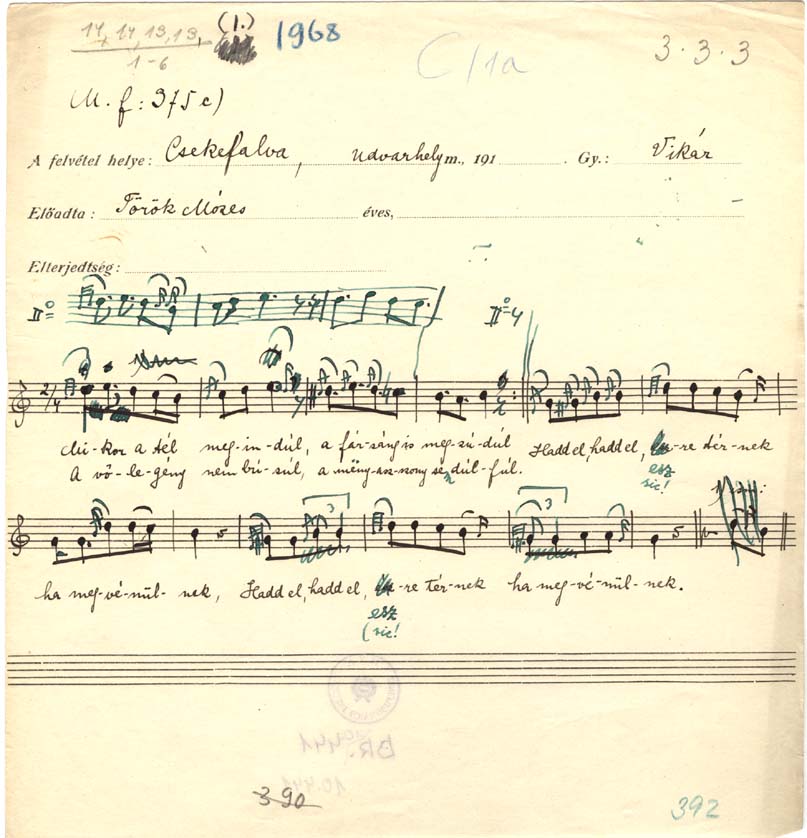 14, 14, 13, 13, (1.) 1968
1-6
C/1a
3.3.3
M. f: 375 c)
A felvétel helye: Csekefalva, Udvarhely m., 191 . Gy.: Vikár
Előadta: Török Mózes éves,
Elterjedtség:
2/4
kor a tél meg-in-dúl, a fár-sáng is meg-zú-dúl Hadd el, hadd el, re tér-nek
A vő-le-geny nem bú-súl, a mëny-asz-szony se dúl-fúl. esz
sic!
3 3
ha meg-vé-nűl-nek, Hadd el, hadd el, re tér-nek ha meg-vé-nűl-nek.
esz
(sic!
BR.
390
392